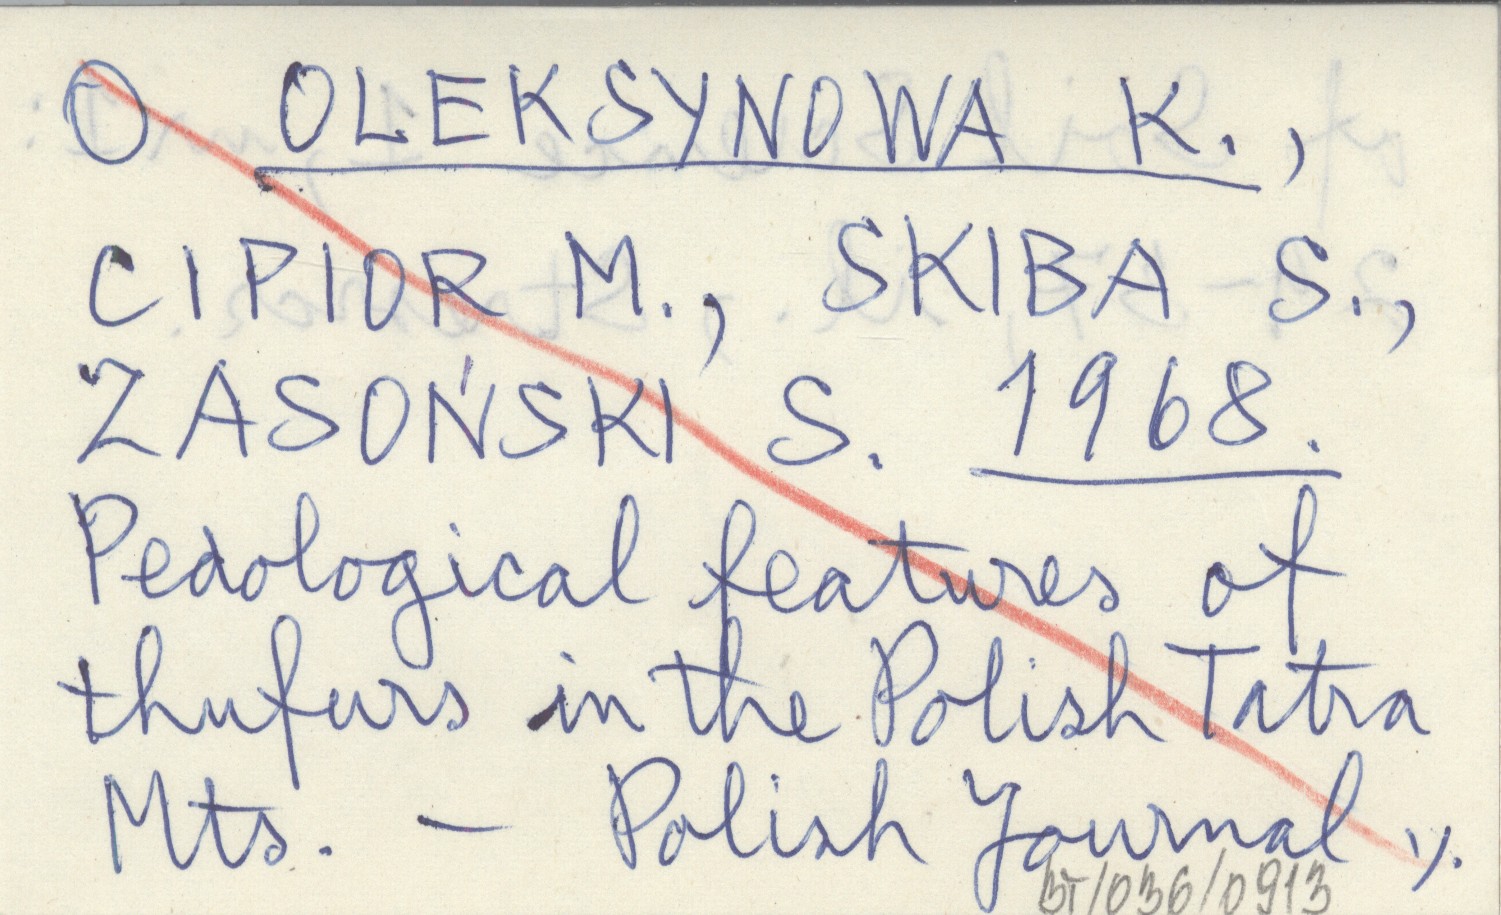 O OLEKSYNOWA K.,
CIPIOR M., SKIBA S.,
ZASOŃSKI S. 1968.
Pedological features of
thufurs in the Polish Tatra
Mts. – Polish Journal v.
BT/036/0913